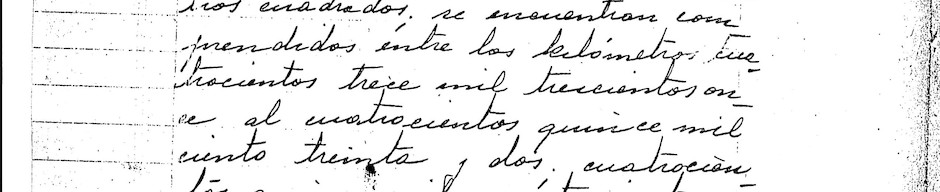 tros cuadrados. se encuentran com
prendidos entre los kilómetros cua_
trocientos trece mil trescientos on_
ce al cuatrocientos quince mil
ciento treinta y dos. cuatrocien_